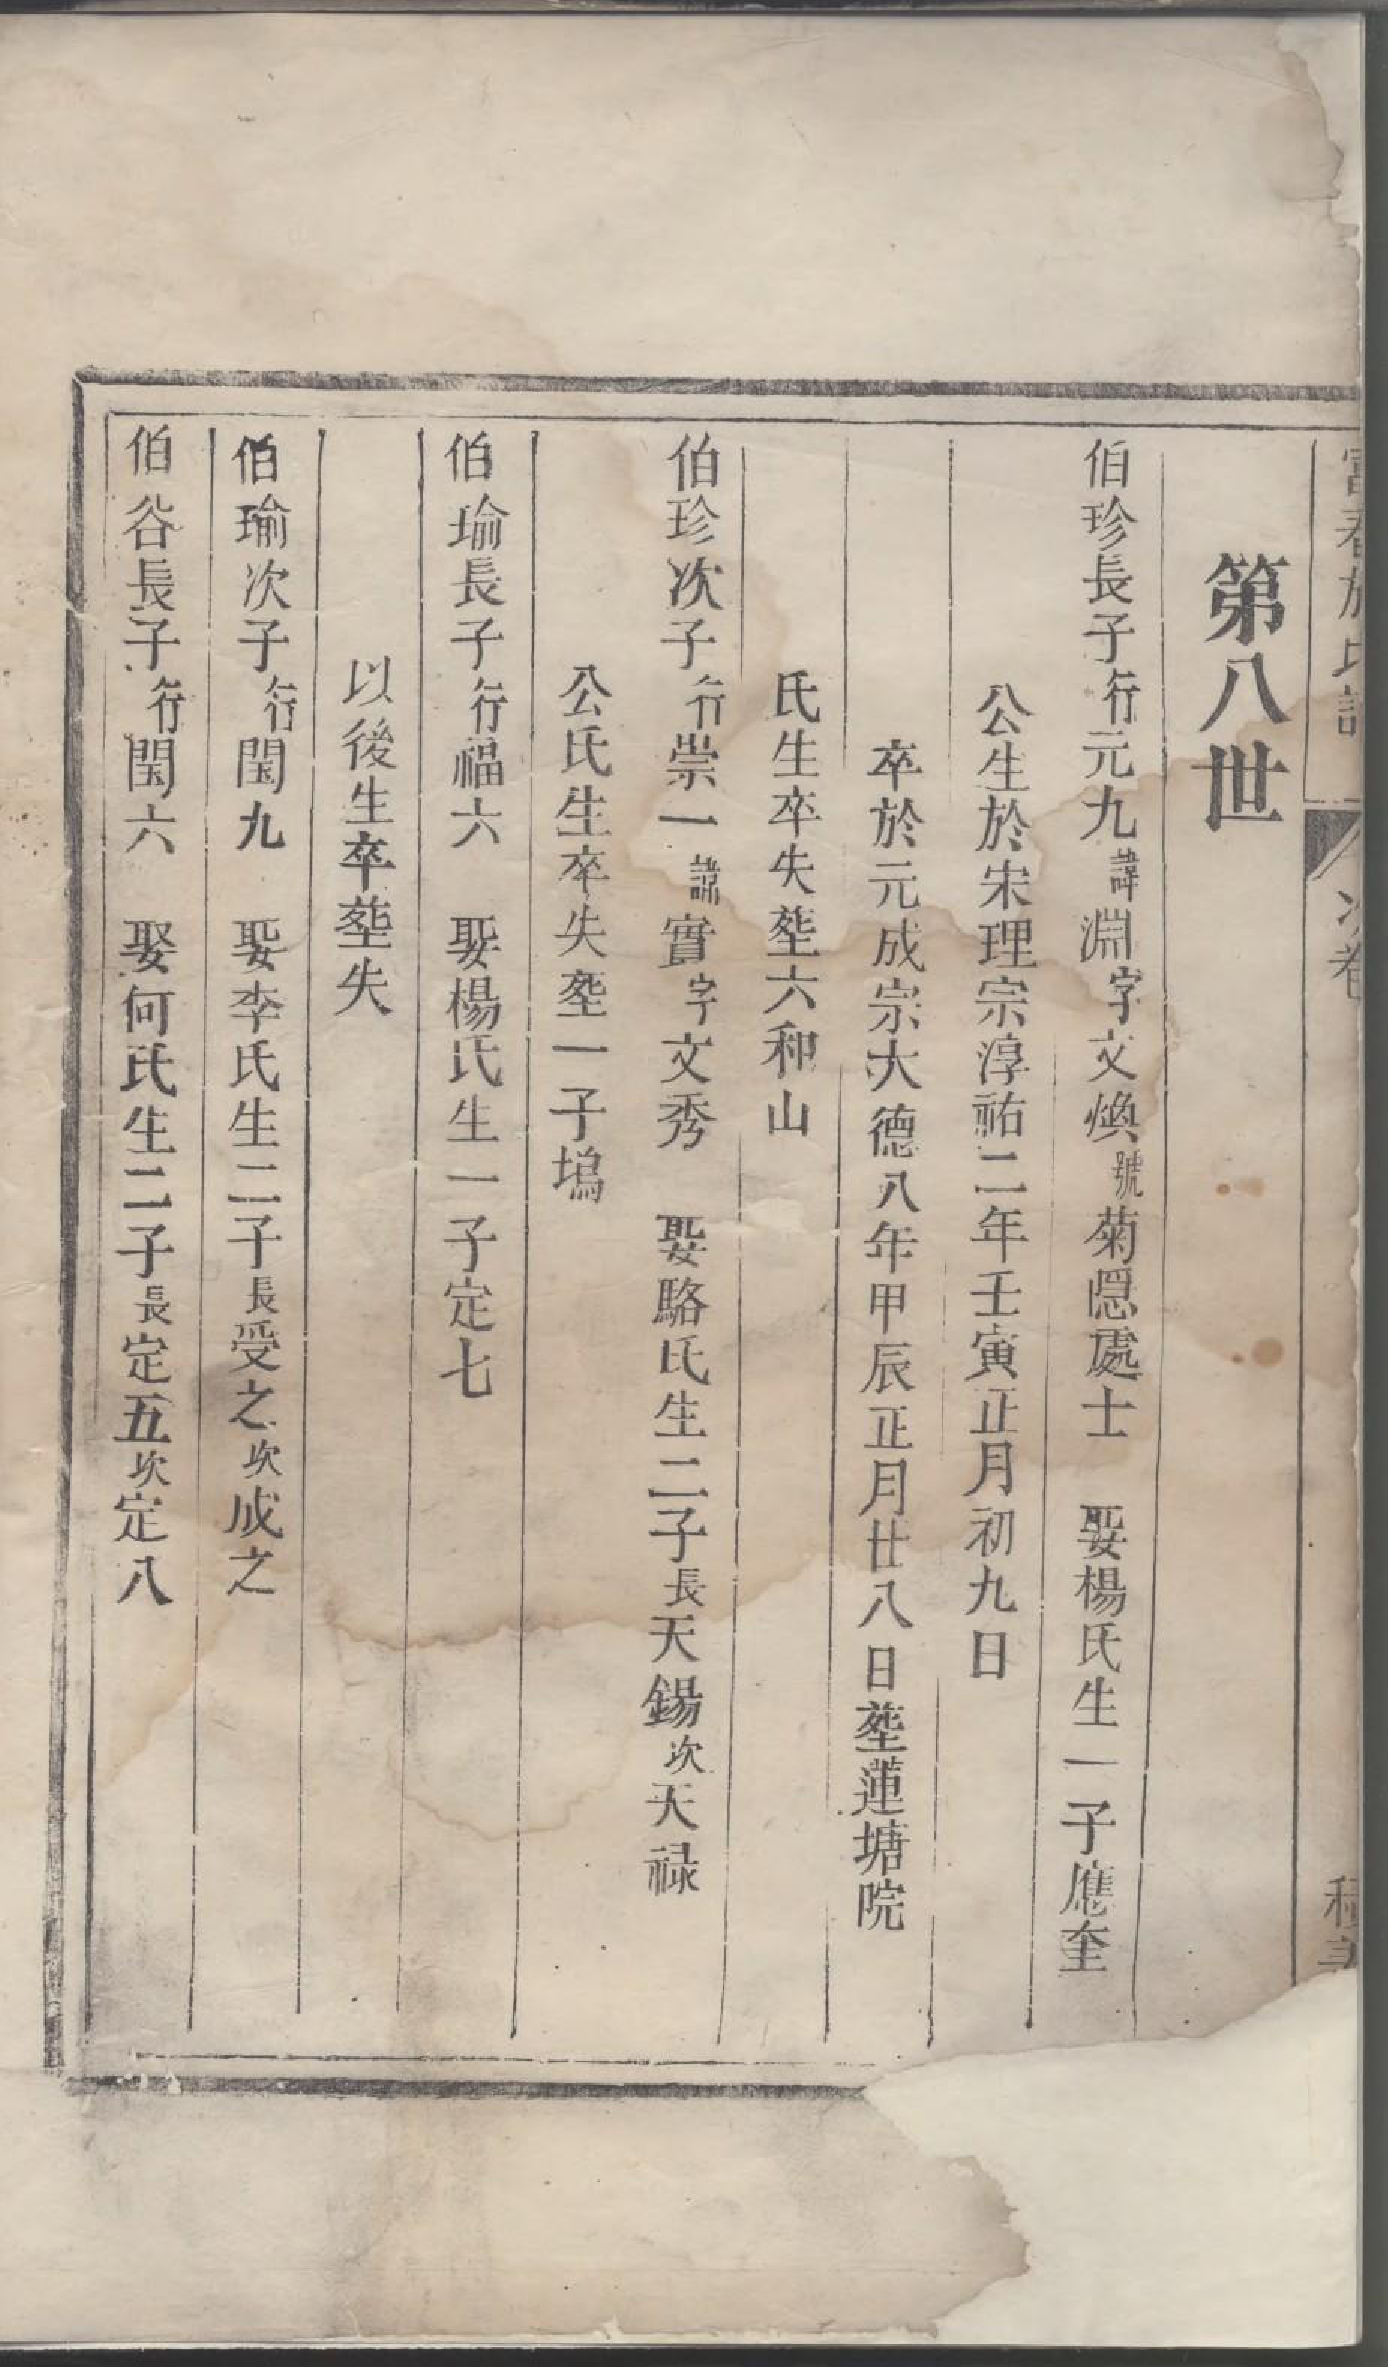 氏
卷
第八世
伯珍長子行元九諱淵字文煥號菊隠處士　娶楊氏生一子應奎
公生於宋理宗淳祐二年壬寅正月初九日
卒於元成宗大德八年甲辰正月廿八日塟蓮塘院
氏生卒失塟六和山
伯珍次子行崇一諱實字文秀　娶駱氏生二子長天錫次天禄
公氏生卒失塟一子塢
伯瑜長子行福六　娶楊氏生一子定七
以後生卒塟失
伯瑜次子行閏九　娶李氏生二子長受之次成之
伯谷長子行閏六　娶何氏生二子長定五次定八